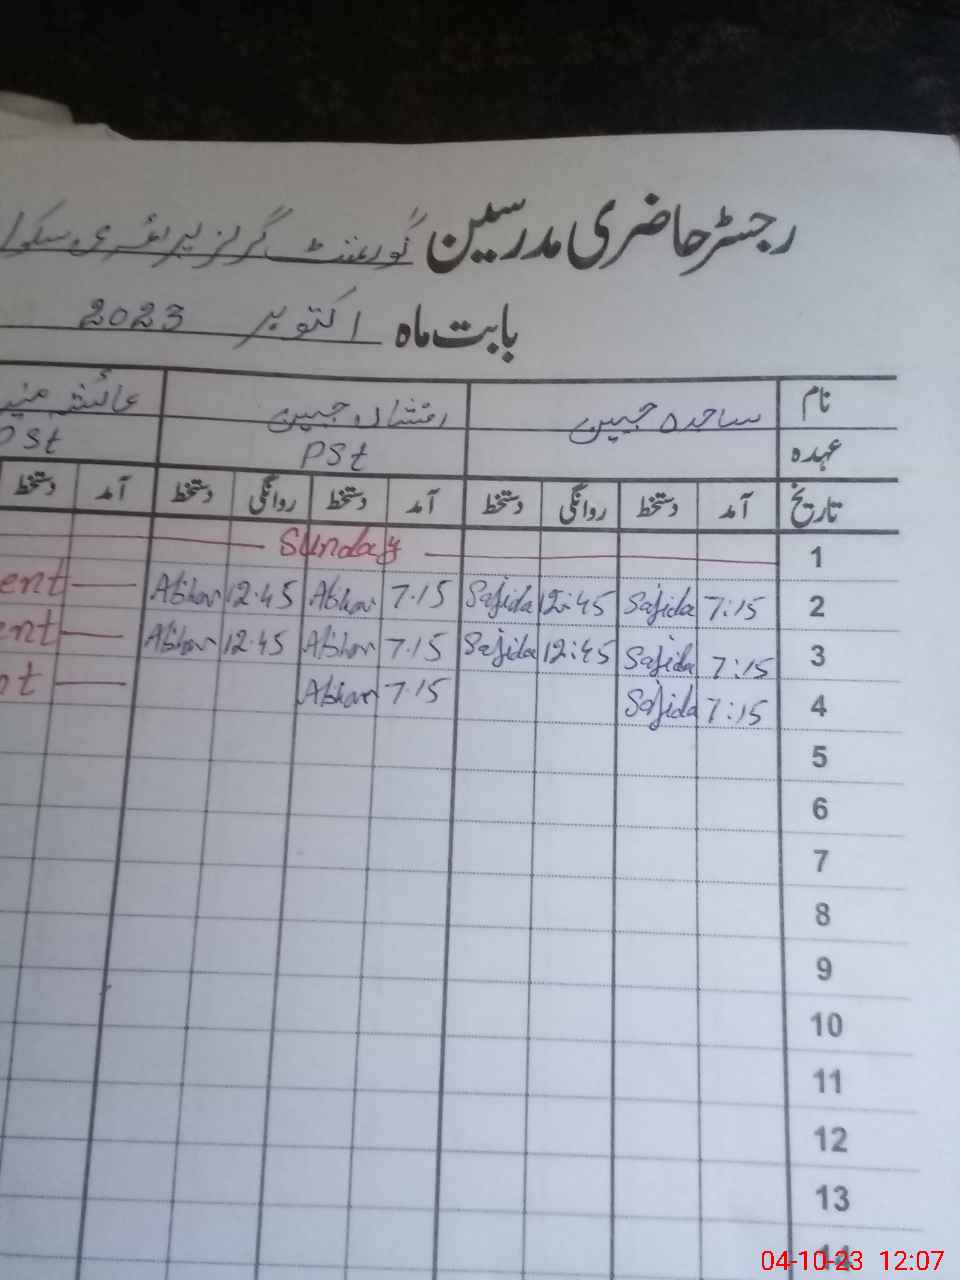 رجسٹر حاضری مدرسین گورنمنٹ گرلز پرائمری سکول
بابت ماہ اکتوبر 2023
نام ساجدہ جبین جبین عائشہ
عہدہ PSt PSt
تاریخ آمد دستخط روانگی دستخط آمد دستخط روانگی دستخط آمد دستخط
1 Sunday
2 7:15 Sajida 12:45 Sajida 7.15 12.45 ent
3 7:15 Sajida 12:45 Sajida 7.15 12.45 ent
4 7:15 Sajida 7.15 nt
5
6
7
8
9
10
11
12
13
14
04-10-23 12:07